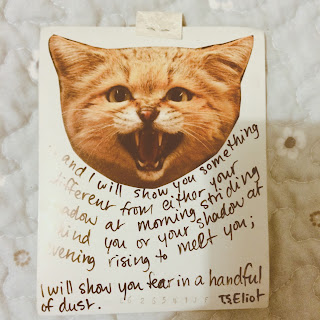 and I will show you something
different from either your
shadow at morning striding
behind you or your shadow at
evening rising to meet you;
I will show you fear in a handful
of dust.
TS Eliot